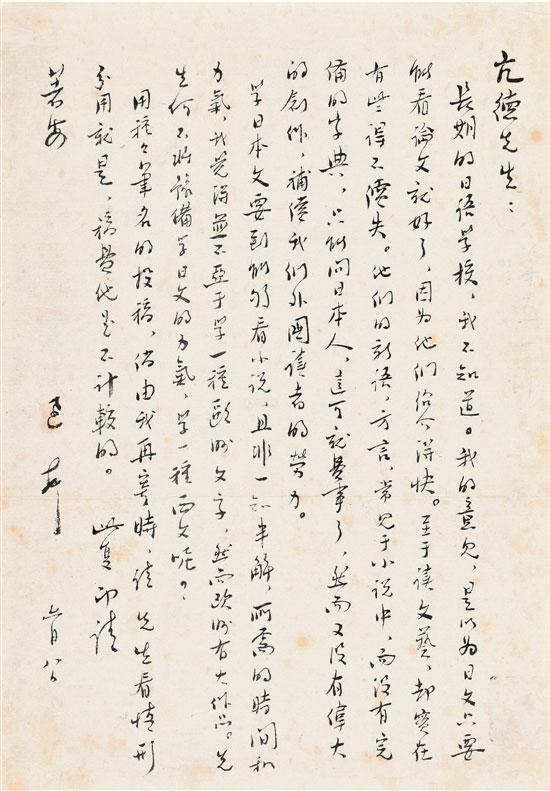 亢德先生：
長期的日语學校，我不知道。我的意見，是以为日文只要
能看論文就好了，因为他们绍介得快。至于读文藝，却实在
有些得不償失。他们的新语，方言，常见于小说中，而没有完
備的字典，只能问日本人，這可就費事了，然而又没有偉大
的創作，補償我们外國讀者的勞力。
學日本文要到能夠看小说，且非一知半解，所需的時间和
力氣，我觉得並不亞于学一種歐洲文字，然而欧洲有大作品。先
生何不將豫備学日文的力氣，学一種西文呢？
用種々筆名的投稿，倘由我再寄時，請 先生看情形
分用就是，稿費他是不計較的。 此复 即請
著安
迅 頓
六月八日